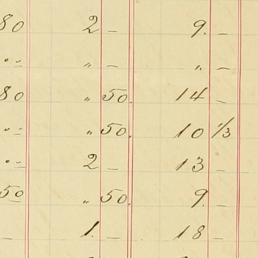 80 2 - 9. -
" " - " -
80 " 50. 14 -
" " 50. 10 1/3
" 2 - 13 -
50 " 50. 9 -
- 1. - 18 -